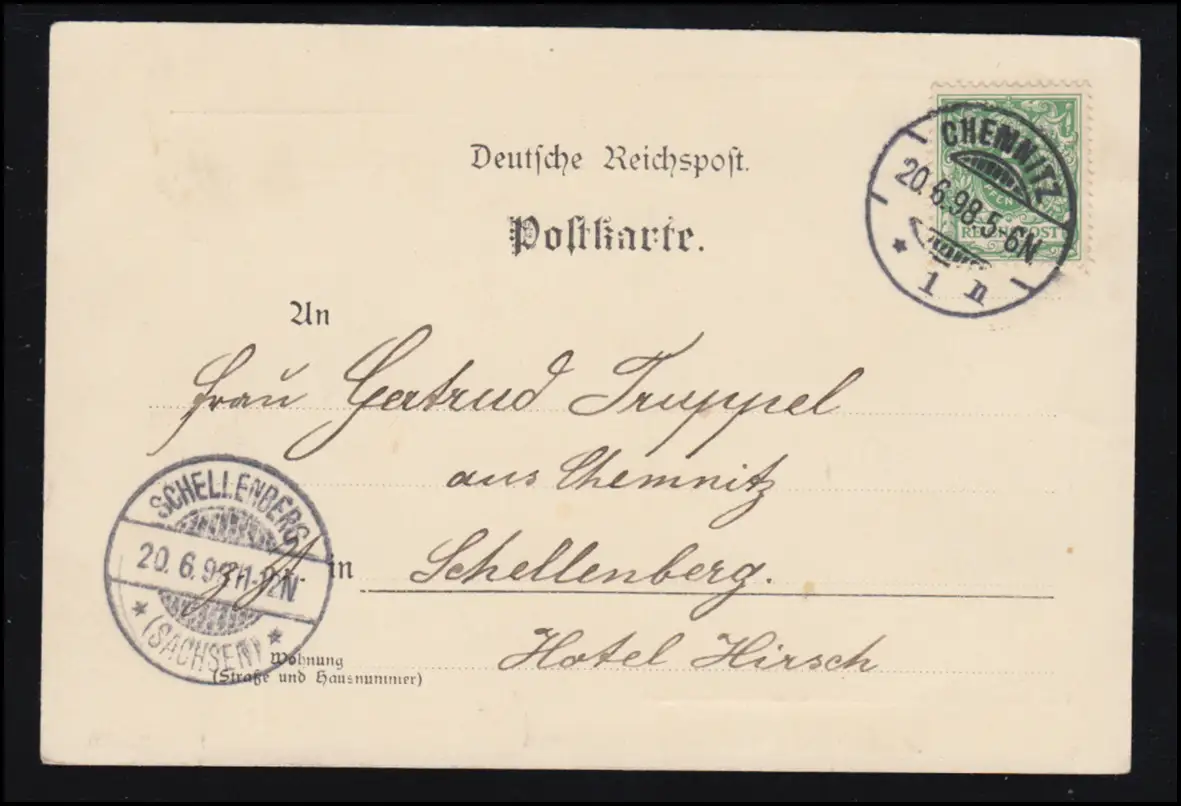 Deutsche Reichspost.
Postkarte.
CHEMNITZ
20.6.98.5-6N.
* 1 n
PFENNIG
REICHSPOST
An
Frau Gertrud Truppel
aus Chemnitz
in Schellenberg.
Hotel Hirsch
SCHELLENBERG
20.6.98 11-12N
* (SACHSEN) *
Wohnung
(Straße und Hausnummer)